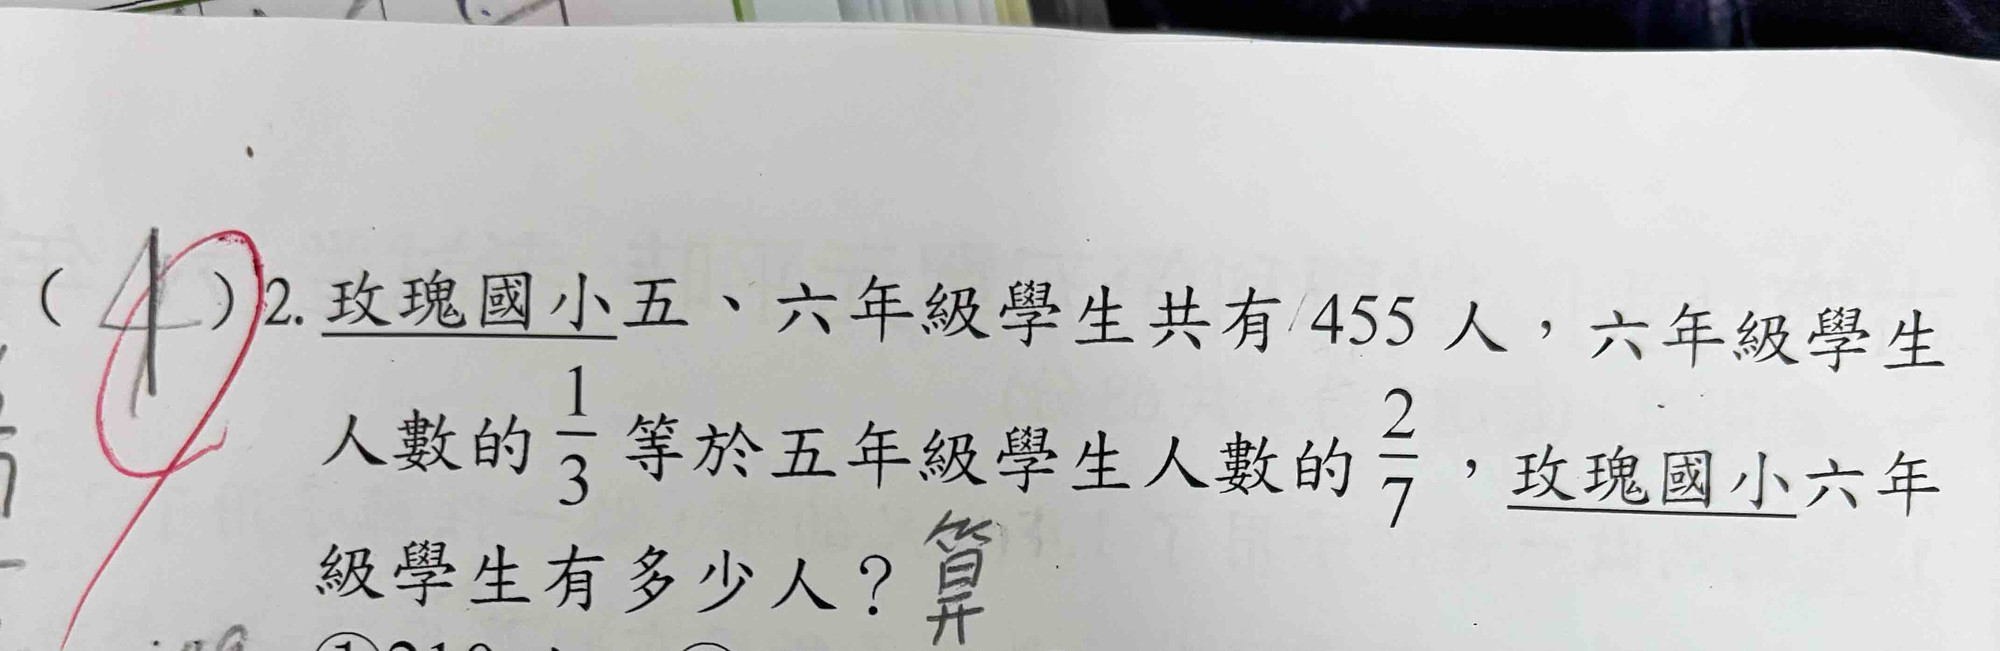 ( 4 ) 2. 玫瑰國小五、六年級學生共有 455 人，六年級學生
人數的 1/3 等於五年級學生人數的 2/7，玫瑰國小六年
級學生有多少人？算